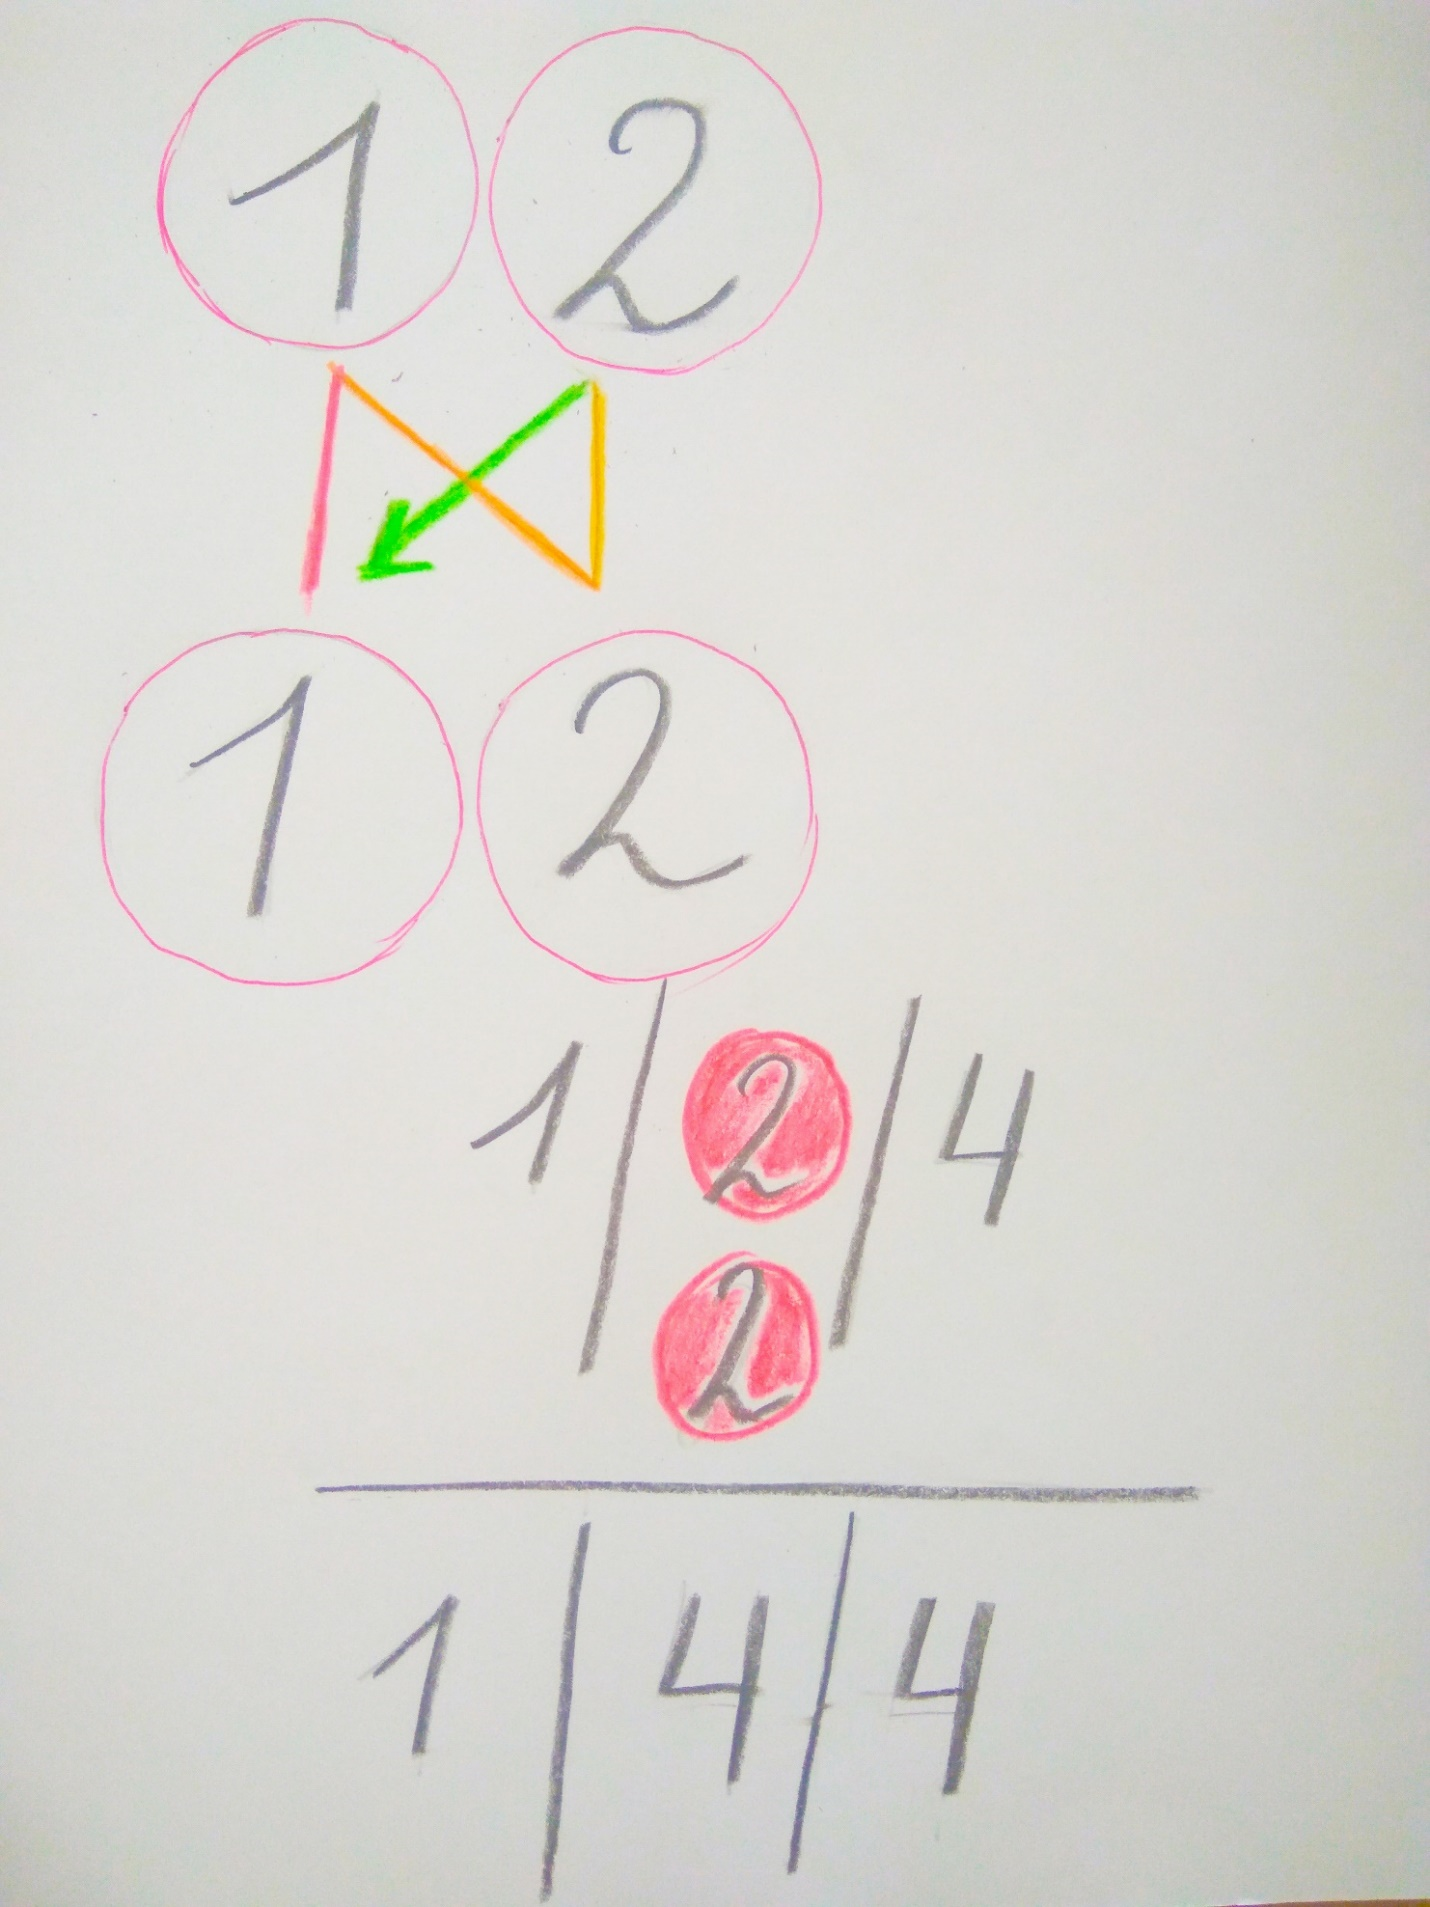 1 2
1 2
1 | 2 | 4
2
1 | 4 | 4